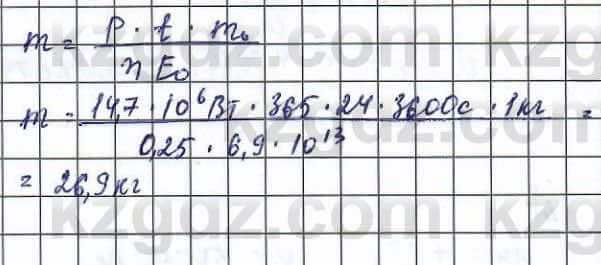 m = P · t · m₀ / η E₀
m = 14,7 · 10⁶ Вт · 365 · 24 · 3600с · 1кг / 0,25 · 6,9 · 10¹³ =
= 26,9 кг
kzgdz.com